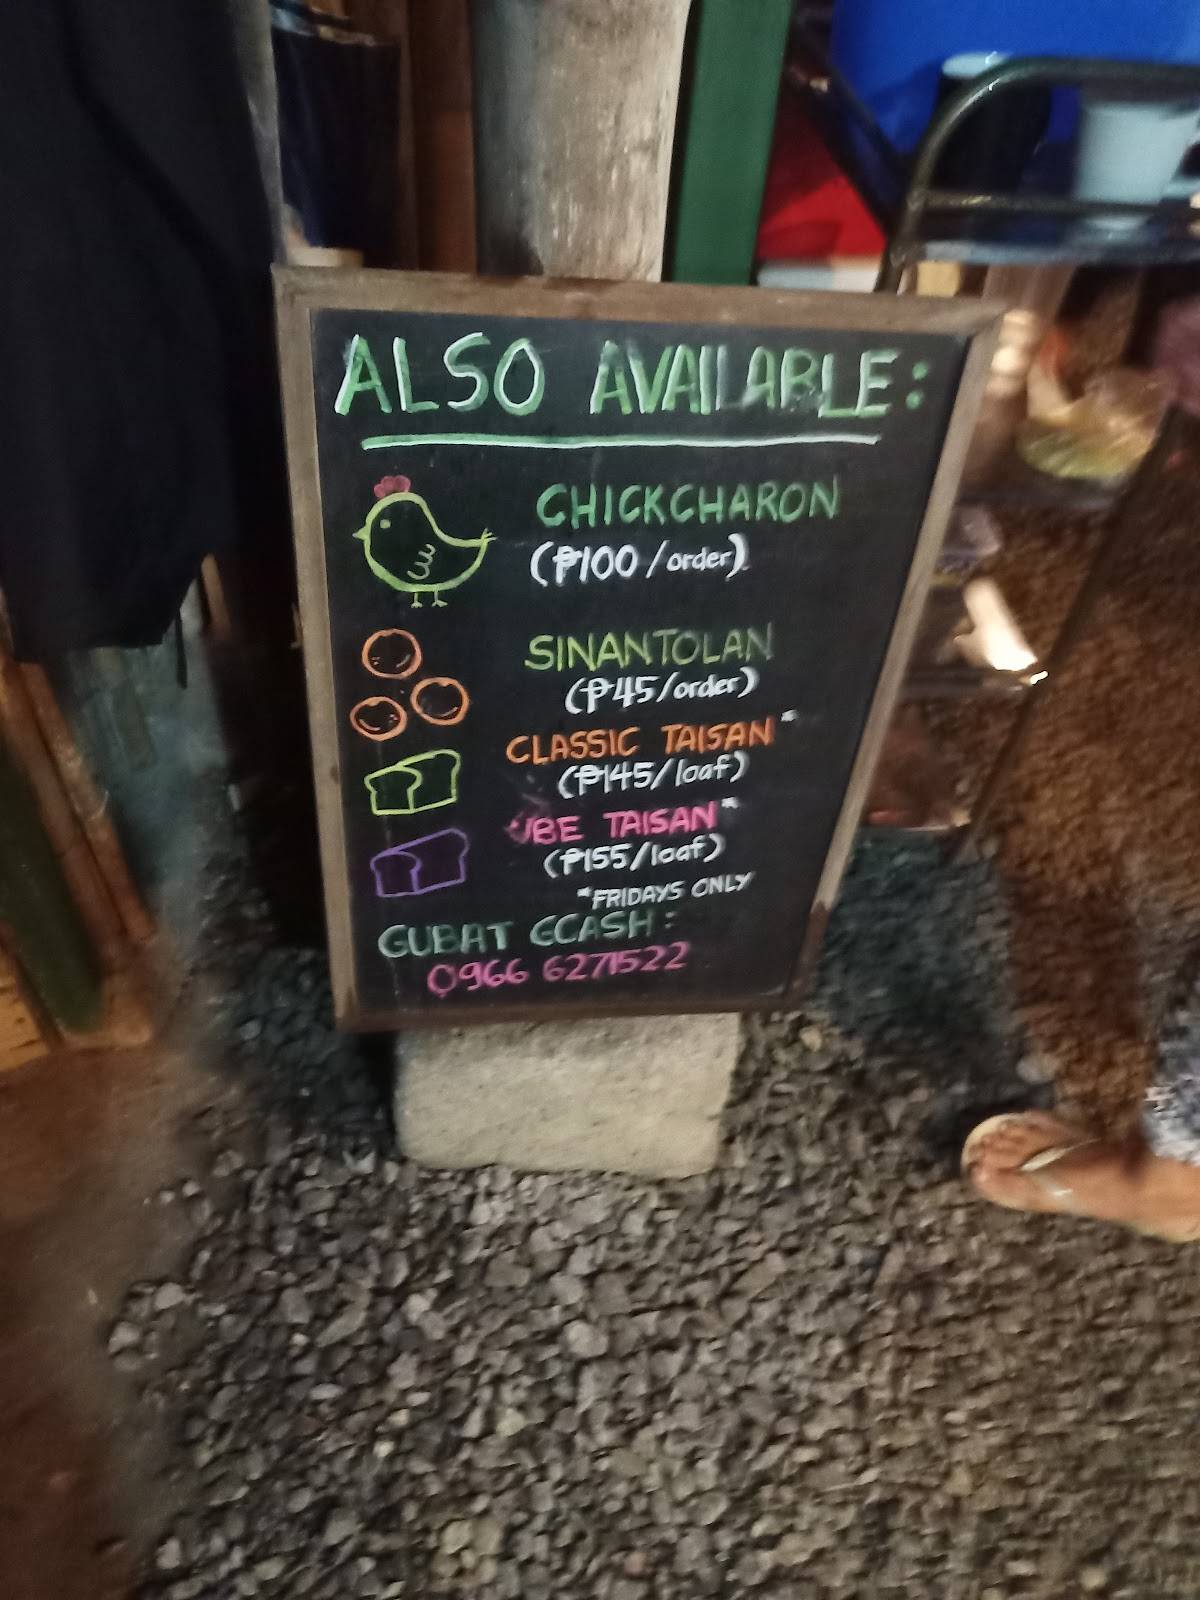 ALSO AVAILABLE:
CHICKCHARON
(₱100/order)
SINANTOLAN
(₱45/order)
CLASSIC TAISAN*
(₱145/loaf)
UBE TAISAN*
(₱155/loaf)
*FRIDAYS ONLY
GUBAT GCASH:
0966 6271522